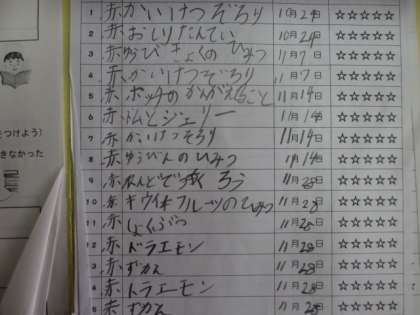 1 赤 かいけつぞろり 10月24日 ☆☆☆☆☆
2 赤 おしりたんてい 10月24日 ☆☆☆☆☆
3 赤 ゆうびんきょくのひみつ 11月7日 ☆☆☆☆☆
4 赤 かいけつぞろり 11月7日 ☆☆☆☆☆
5 赤 ごと 11月14日 ☆☆☆☆☆
6 赤 トムとジェリー 11月14日 ☆☆☆☆☆
7 赤 かいけつそろり 11月14日 ☆☆☆☆☆
をつけよう)
8 赤 ゆうびんのひみつ 11月14日 ☆☆☆☆☆
きなかった
9 赤 ろう 11月28日 ☆☆☆☆☆
10 赤 キウイフルーツのひみつ 11月28日 ☆☆☆☆☆
11 赤 しょくぶつ 11月28日 ☆☆☆☆☆
12 赤 ドラエモン 11月28日 ☆☆☆☆☆
3 赤 ずかん 11月28日 ☆☆☆☆☆
4 赤 トラエーモン 11月28日 ☆☆☆☆☆
5 赤 ずかん 11月28日 ☆☆☆☆☆